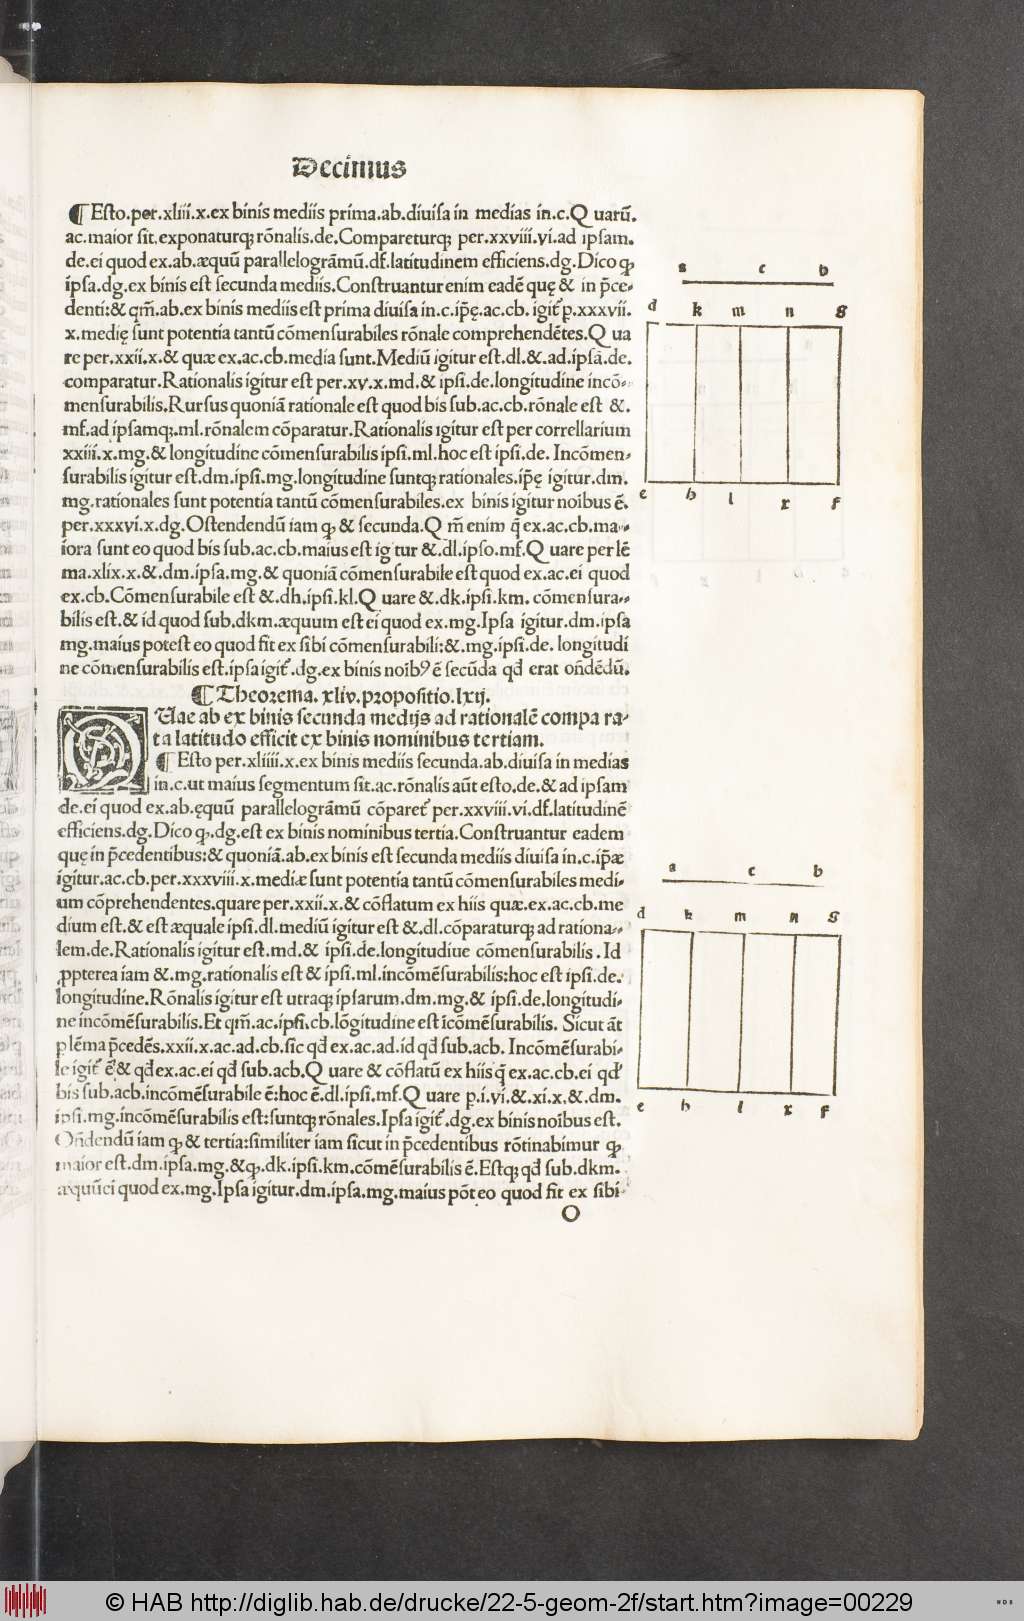 Decimus
¶ Esto.per.xliii.x.ex binis mediis prima.ab.diuisa in medias in.c.Q uarū.
ac.maior sit.exponaturqꝫ rõnalis.de.Compareturqꝫ per.xxviii.vi.ad ipsam.
de.ei quod ex.ab.æquū parallelogrāmū.df.latitudinem efficiens.dg.Dico ꝙ
ipsa.dg.ex binis est secunda mediis.Construantur enim eadē quę & in p̄ce-
denti:& qm̄.ab.ex binis mediis est prima diuisa in.c.ip̄ę.ac.cb. igit᷑ p.xxxvii.
x.medię sunt potentia tantū cōmensurabiles rōnale comprehendētes.Q ua
re per.xxii.x.& quæ ex.ac.cb.media sunt.Mediū igitur est.dl.&.ad.ipsā.de.
comparatur.Rationalis igitur est per.xv.x.md.& ipsi.de.longitudine incō-
mensurabilis.Rursus quoniā rationale est quod bis sub.ac.cb.rōnale est &.
mf.ad ipsamqꝫ.ml.rōnalem cōparatur.Rationalis igitur est per correllarium
xxiii.x.mg.& longitudine cōmensurabilis ipsi.ml.hoc est ipsi.de. Incōmen-
surabilis igitur est.dm.ipsi.mg.longitudine suntqꝫ rationales.ip̄ę igitur.dm.
mg.rationales sunt potentia tantū cōmensurabiles.ex binis igitur noībus ē.
per.xxxvi.x.dg.Ostendendū iam ꝙ & secunda.Q m̄ enim q̄ ex.ac.cb.ma-
iora sunt eo quod bis sub.ac.cb.maius est igitur &.dl.ipso.mf.Q uare per lē
ma.xlix.x.&.dm.ipsa.mg.& quoniā cōmensurabile est quod ex.ac.ei quod
ex.cb.Cōmensurabile est &.dh.ipsi.kl.Q uare &.dk.ipsi.km. cōmensura-
bilis est.& id quod sub.dkm.æquum est ei quod ex.mg.Ipsa igitur.dm.ipsa
mg.maius potest eo quod fit ex sibi cōmensurabili:&.mg.ipsi.de. longitudi
ne cōmensurabilis est.ipsa igit᷑.dg.ex binis noībꝰ ē secūda qd̄ erat on̄dēdū.
¶ Theorema.xliv.propositio.lxij.
QUae ab ex binis secunda medijs ad rationalē compa ra-
ta latitudo efficit ex binis nominibus tertiam.
¶ Esto per.xliiii.x.ex binis mediis secunda.ab.diuisa in medias
in.c.ut maius segmentum sit.ac.rōnalis aūt esto.de.& ad ipsam
de.ei quod ex.ab.ęquū parallelogrāmū cōparet᷑ per.xxviii.vi.df.latitudinē
efficiens.dg.Dico ꝙ.dg.est ex binis nominibus tertia.Construantur eadem
quę in p̄cedentibus:& quoniā.ab.ex binis est secunda mediis diuisa in.c.ip̄æ
igitur.ac.cb.per.xxxviii.x.mediæ sunt potentia tantū cōmensurabiles medi-
um cōprehendentes.quare per.xxii.x.& cōflatum ex hiis quæ.ex.ac.cb.me
dium est.& est æquale ipsi.dl.mediū igitur est &.dl.cōparaturqꝫ ad rationa-
lem.de.Rationalis igitur est.md.& ipsi.de.longitudiue cōmensurabilis . Id
ꝓpterea iam &.mg.rationalis est & ipsi.ml.incōmēsurabilis:hoc est ipsi.de.
longitudine.Rōnalis igitur est utraqꝫ ipsarum.dm.mg.& ipsi.de.longitudi-
ne incōmēsurabilis.Et qm̄.ac.ipsi.cb.lōgitudine est īcōmēsurabilis. Sicut āt
p lēma p̄cedēs.xxii.x.ac.ad.cb.sic qd̄ ex.ac.ad.id qd̄ sub.acb. Incōmēsurabi-
le igit᷑ ē & qd̄ ex.ac.ei qd̄ sub.acb.Q uare & cōflatū ex hiis q̄ ex.ac.cb.ei qd̄
bis sub.acb.incōmēsurabile ē:hoc ē.dl.ipsi.mf.Q uare p.i.vi.&.xi.x.&.dm.
ipsi.mg.incōmēsurabilis est:suntqꝫ rōnales.Ipsa igit᷑.dg.ex binis noībus est.
On̄dendū iam ꝙ & tertia:similiter iam sicut in p̄cedentibus rōtinabimur ꝙ
maior est.dm.ipsa.mg.&ꝙ.dk.ipsi.km.cōmēsurabilis ē.Estqꝫ qd̄ sub.dkm.
æquū ei quod ex.mg.Ipsa igitur.dm.ipsa.mg.maius pōt eo quod fit ex sibi
O
a c b
d k m n g
e h l x f
a c b
d k m n g
e h l x f
© HAB http://diglib.hab.de/drucke/22-5-geom-2f/start.htm?image=00229